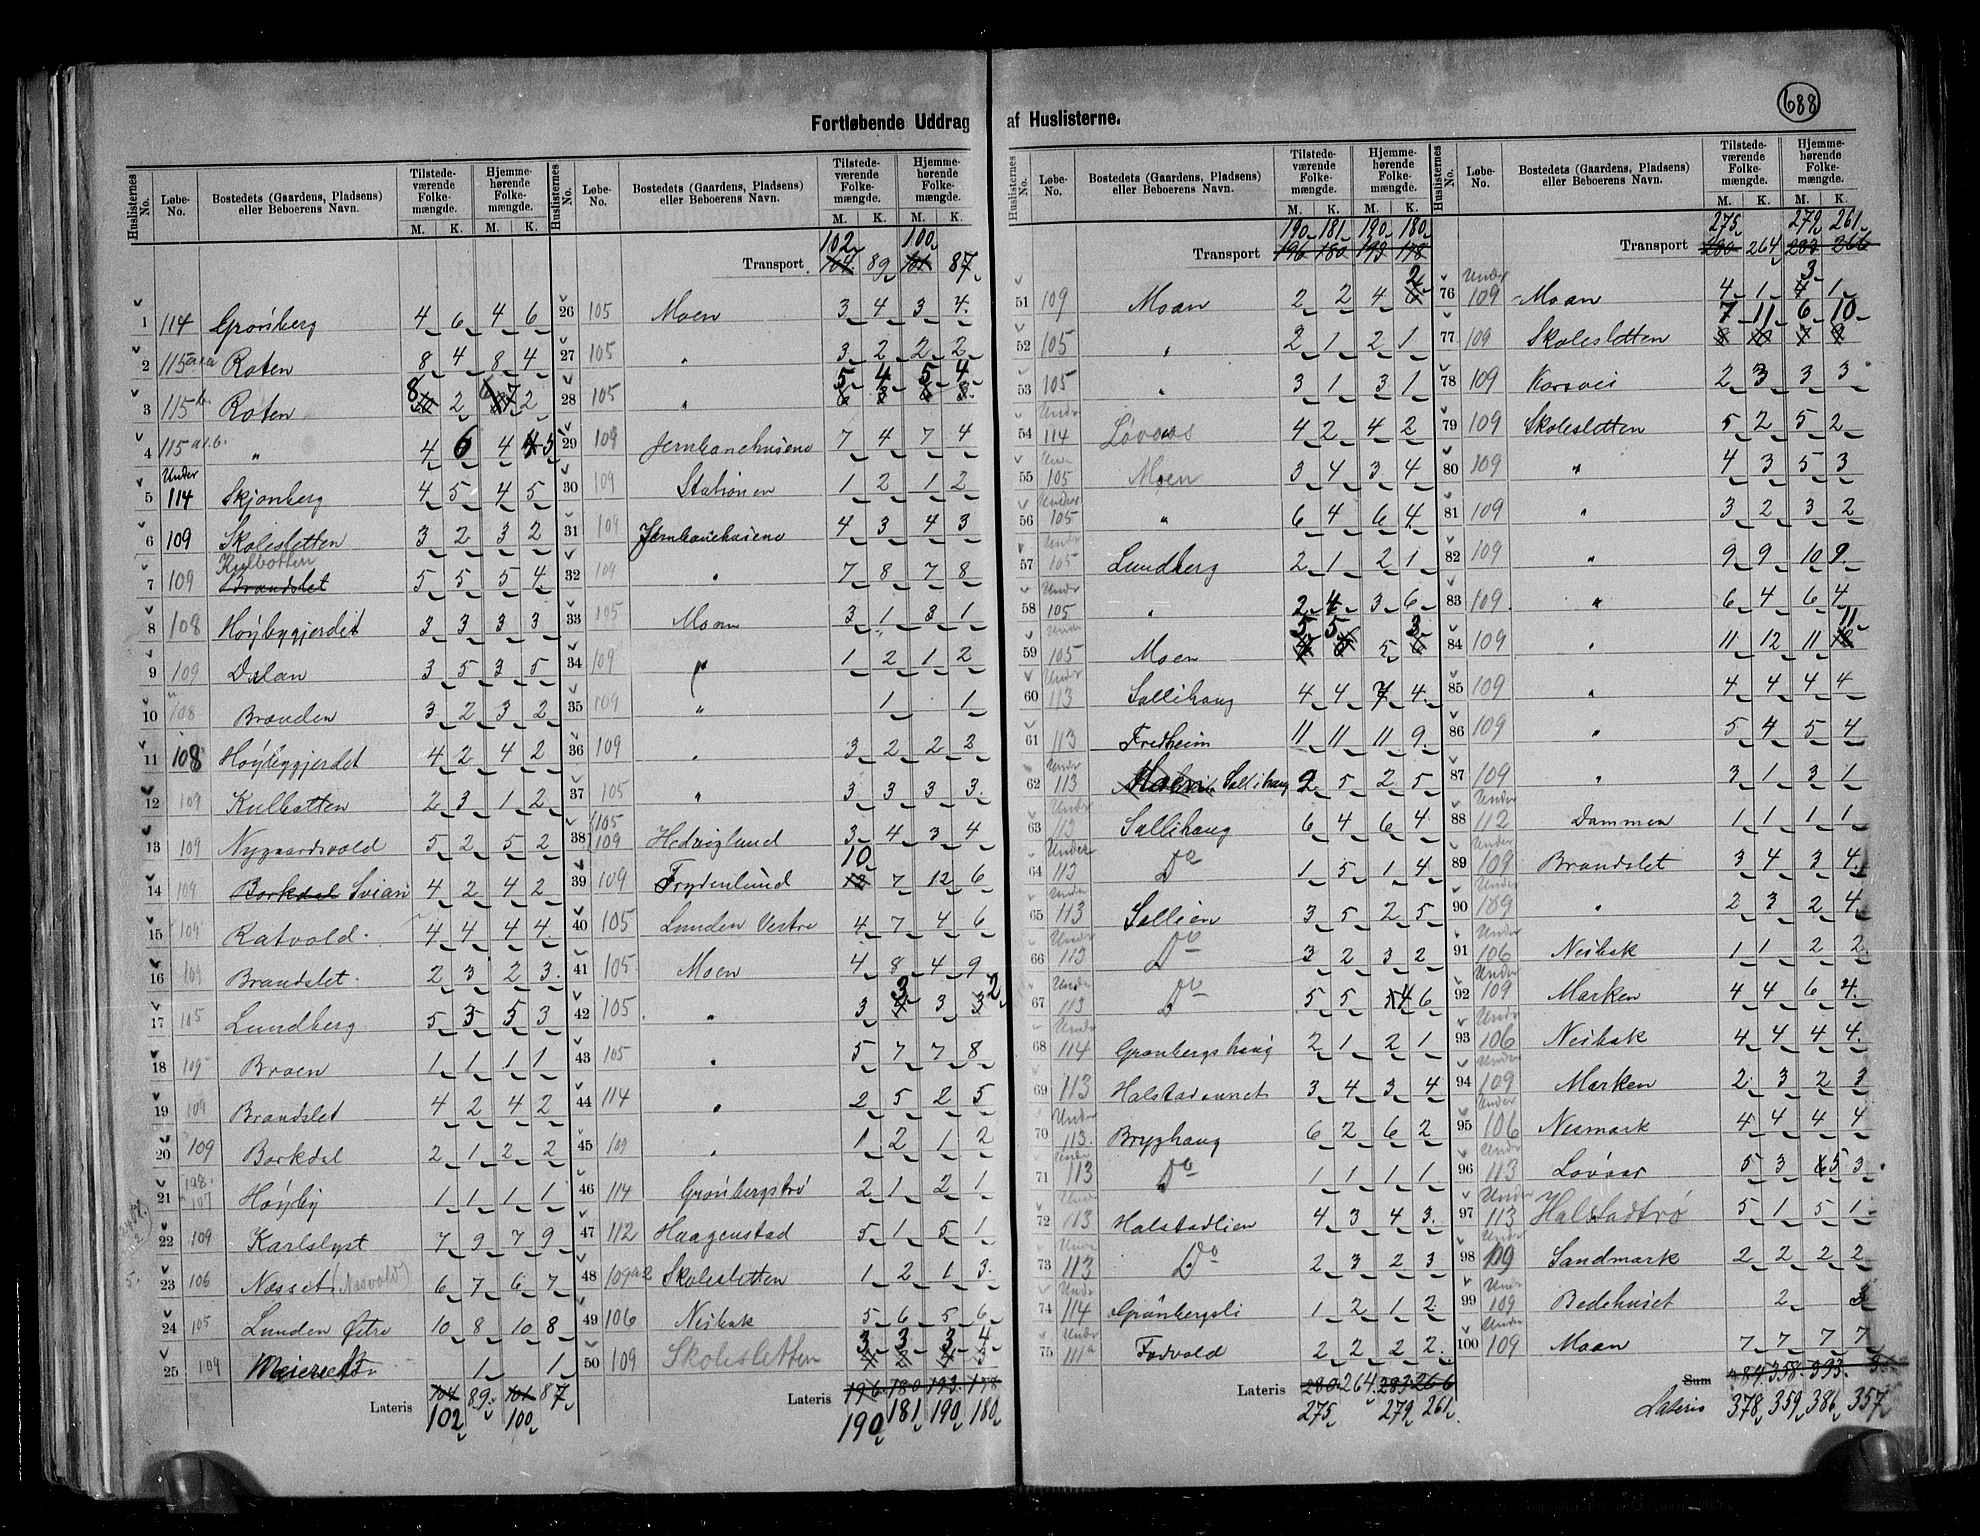 688
Fortløbende Uddrag af Huslisterne.
Huslisternes No. Løbe-No. Bostedets (Gaardens, Pladsens) eller Beboerens Navn. Tilstedeværende Folkemængde. M. K. Hjemmehørende Folkemængde. M. K.
1 114 Grønberg 4 6 4 6
2 115 Roten 8 4 8 4
3 115b Roten 8 2 7 2
4 115 a.b. " 4 6 4 5
5 Under 114 Skjønberg 4 5 4 5
6 109 Skolesletten 3 2 3 2
7 109 Kulbotten Brandslet 5 5 5 4
8 108 Høybygjerdet 3 3 3 3
9 109 Dalan 3 5 3 5
10 108 Brænden 3 2 3 2
11 108 Høybygjerdet 4 2 4 2
12 109 Kulbotten 2 3 1 2
13 109 Nygaardsvold 5 2 5 2
14 109 Borkdal Svian 4 2 4 2
15 109 Ratvold 4 4 4 4
16 109 Brandslet 2 3 2 3
17 105 Lundberg 5 3 5 3
18 109 Broen 1 1 1 1
19 109 Brandslet 4 2 4 2
20 109 Borkdal 2 1 2 2
21 108 107 Høyby 1 1 1 1
22 109 Karlslyst 7 9 7 9
23 106 Næsset (Næsvold) 6 7 6 7
24 105 Lunden Østre 10 8 10 8
25 109 Meieriet 1 1
Lateris 104 89 101 87
102 100
Huslisternes No. Løbe-No. Bostedets (Gaardens, Pladsens) eller Beboerens Navn. Tilstedeværende Folkemængde. M. K. Hjemmehørende Folkemængde. M. K.
102 100
Transport 104 89 101 87
26 105 Moen 3 4 3 4
27 105 " 3 2 2 2
28 105 " 5 4 5 4
29 109 Jernbanehusene 7 4 7 4
30 109 Stationen 1 2 1 2
31 109 Jernbanehusene 4 3 4 3
32 109 " 7 8 7 8
33 105 Moan 3 1 3 1
34 109 " 1 2 1 2
35 109 " 1 1
36 109 " 3 2 2 2
37 105 " 3 3 3 3
38 105 109 Hedviglund 3 4 3 4
39 109 Frydenlund 10 12 7 12 6
40 105 Lunden Vestre 4 7 4 6
41 105 Moen 4 8 4 9
42 105 " 3 3 3 2
43 105 " 5 7 7 8
44 114 " 2 5 2 5
45 109 " 1 2 1 2
46 114 Grønbergstrø 2 1 2 1
47 112 Haagenstad 5 1 5 1
48 109a2 Skolesletten 1 2 1 3
49 106 Nesbak 5 6 5 6
50 109 Skolesletten 3 3 3 4
Lateris 196 180 193 178
190 181 190 180
Huslisternes No. Løbe-No. Bostedets (Gaardens, Pladsens) eller Beboerens Navn. Tilstedeværende Folkemængde. M. K. Hjemmehørende Folkemængde. M. K.
190 181 190 180
Transport 196 180 193 178
51 109 Moan 2 2 4 2
52 105 " 2 1 2 1
53 105 " 3 1 3 1
54 Under 114 Løvaas 4 2 4 2
55 Under 105 Moen 3 4 3 4
56 Under 105 " 6 4 6 4
57 Under 105 Lundberg 2 1 2 1
58 Under 105 " 2 4 3 6
59 Under 105 Moen 5 5 5 3
60 Under 113 Sallihaug 4 4 7 4
61 113 Fredheim 11 11 11 9
62 Under 113 Sallihaug 2 5 2 5
63 Under 113 Sallihaug 6 4 6 4
64 Under 113 Do 1 5 1 4
65 Under 113 Sallien 3 5 2 5
66 Under 113 Do 3 2 3 2
67 Under 113 Do 5 5 4 6
68 Under 114 Grønbergshaug 2 1 2 1
69 113 Halstadunet 3 4 3 4
70 Under 113 Brygghaug 6 2 6 2
71 Under 113 Do 1 1 1 1
72 Under 113 Halstadlien 4 3 4 3
73 Under 113 Do 2 3 2 3
74 Under 114 Grønbergsli 1 2 1 2
75 Under 111a Fodvold 2 2 2 2
Lateris 280 264 283 266
275 279 261
Huslisternes No. Løbe-No. Bostedets (Gaardens, Pladsens) eller Beboerens Navn. Tilstedeværende Folkemængde. M. K. Hjemmehørende Folkemængde. M. K.
275 279 261
Transport 280 264 283 266
76 Under 109 Moan 4 1 3 1
77 109 Skolesletten 7 11 6 10
78 109 Korsvei 2 3 3 3
79 109 Skolesletten 5 2 5 2
80 109 " 4 3 5 3
81 109 " 3 2 3 2
82 109 " 9 9 10 9
83 109 " 6 4 6 4
84 109 " 11 12 11 11
85 109 " 4 4 4 4
86 109 " 5 4 5 4
87 109 " 3 1 3 1
88 Under 112 Dammen 1 1 1 1
89 Under 109 Brandslet 3 4 3 4
90 Under 109 " 2 3 2 4
91 Under 106 Nesbak 1 1 2 2
92 Under 109 Marken 4 4 6 4
93 Under 106 Nesbak 4 4 4 4
94 Under 109 Marken 2 3 2 3
95 Under 106 Nesmark 4 4 4 4
96 Under 113 Løvaas 5 3 5 3
97 Under 113 Halstadtrø 5 1 5 1
98 Under 109 Sandmark 2 2 2 2
99 Under 109 Bedehuset 2 3
100 Under 109 Moan 7 7 7 7
Sum 384 358 393
Lateris 378 359 386 357